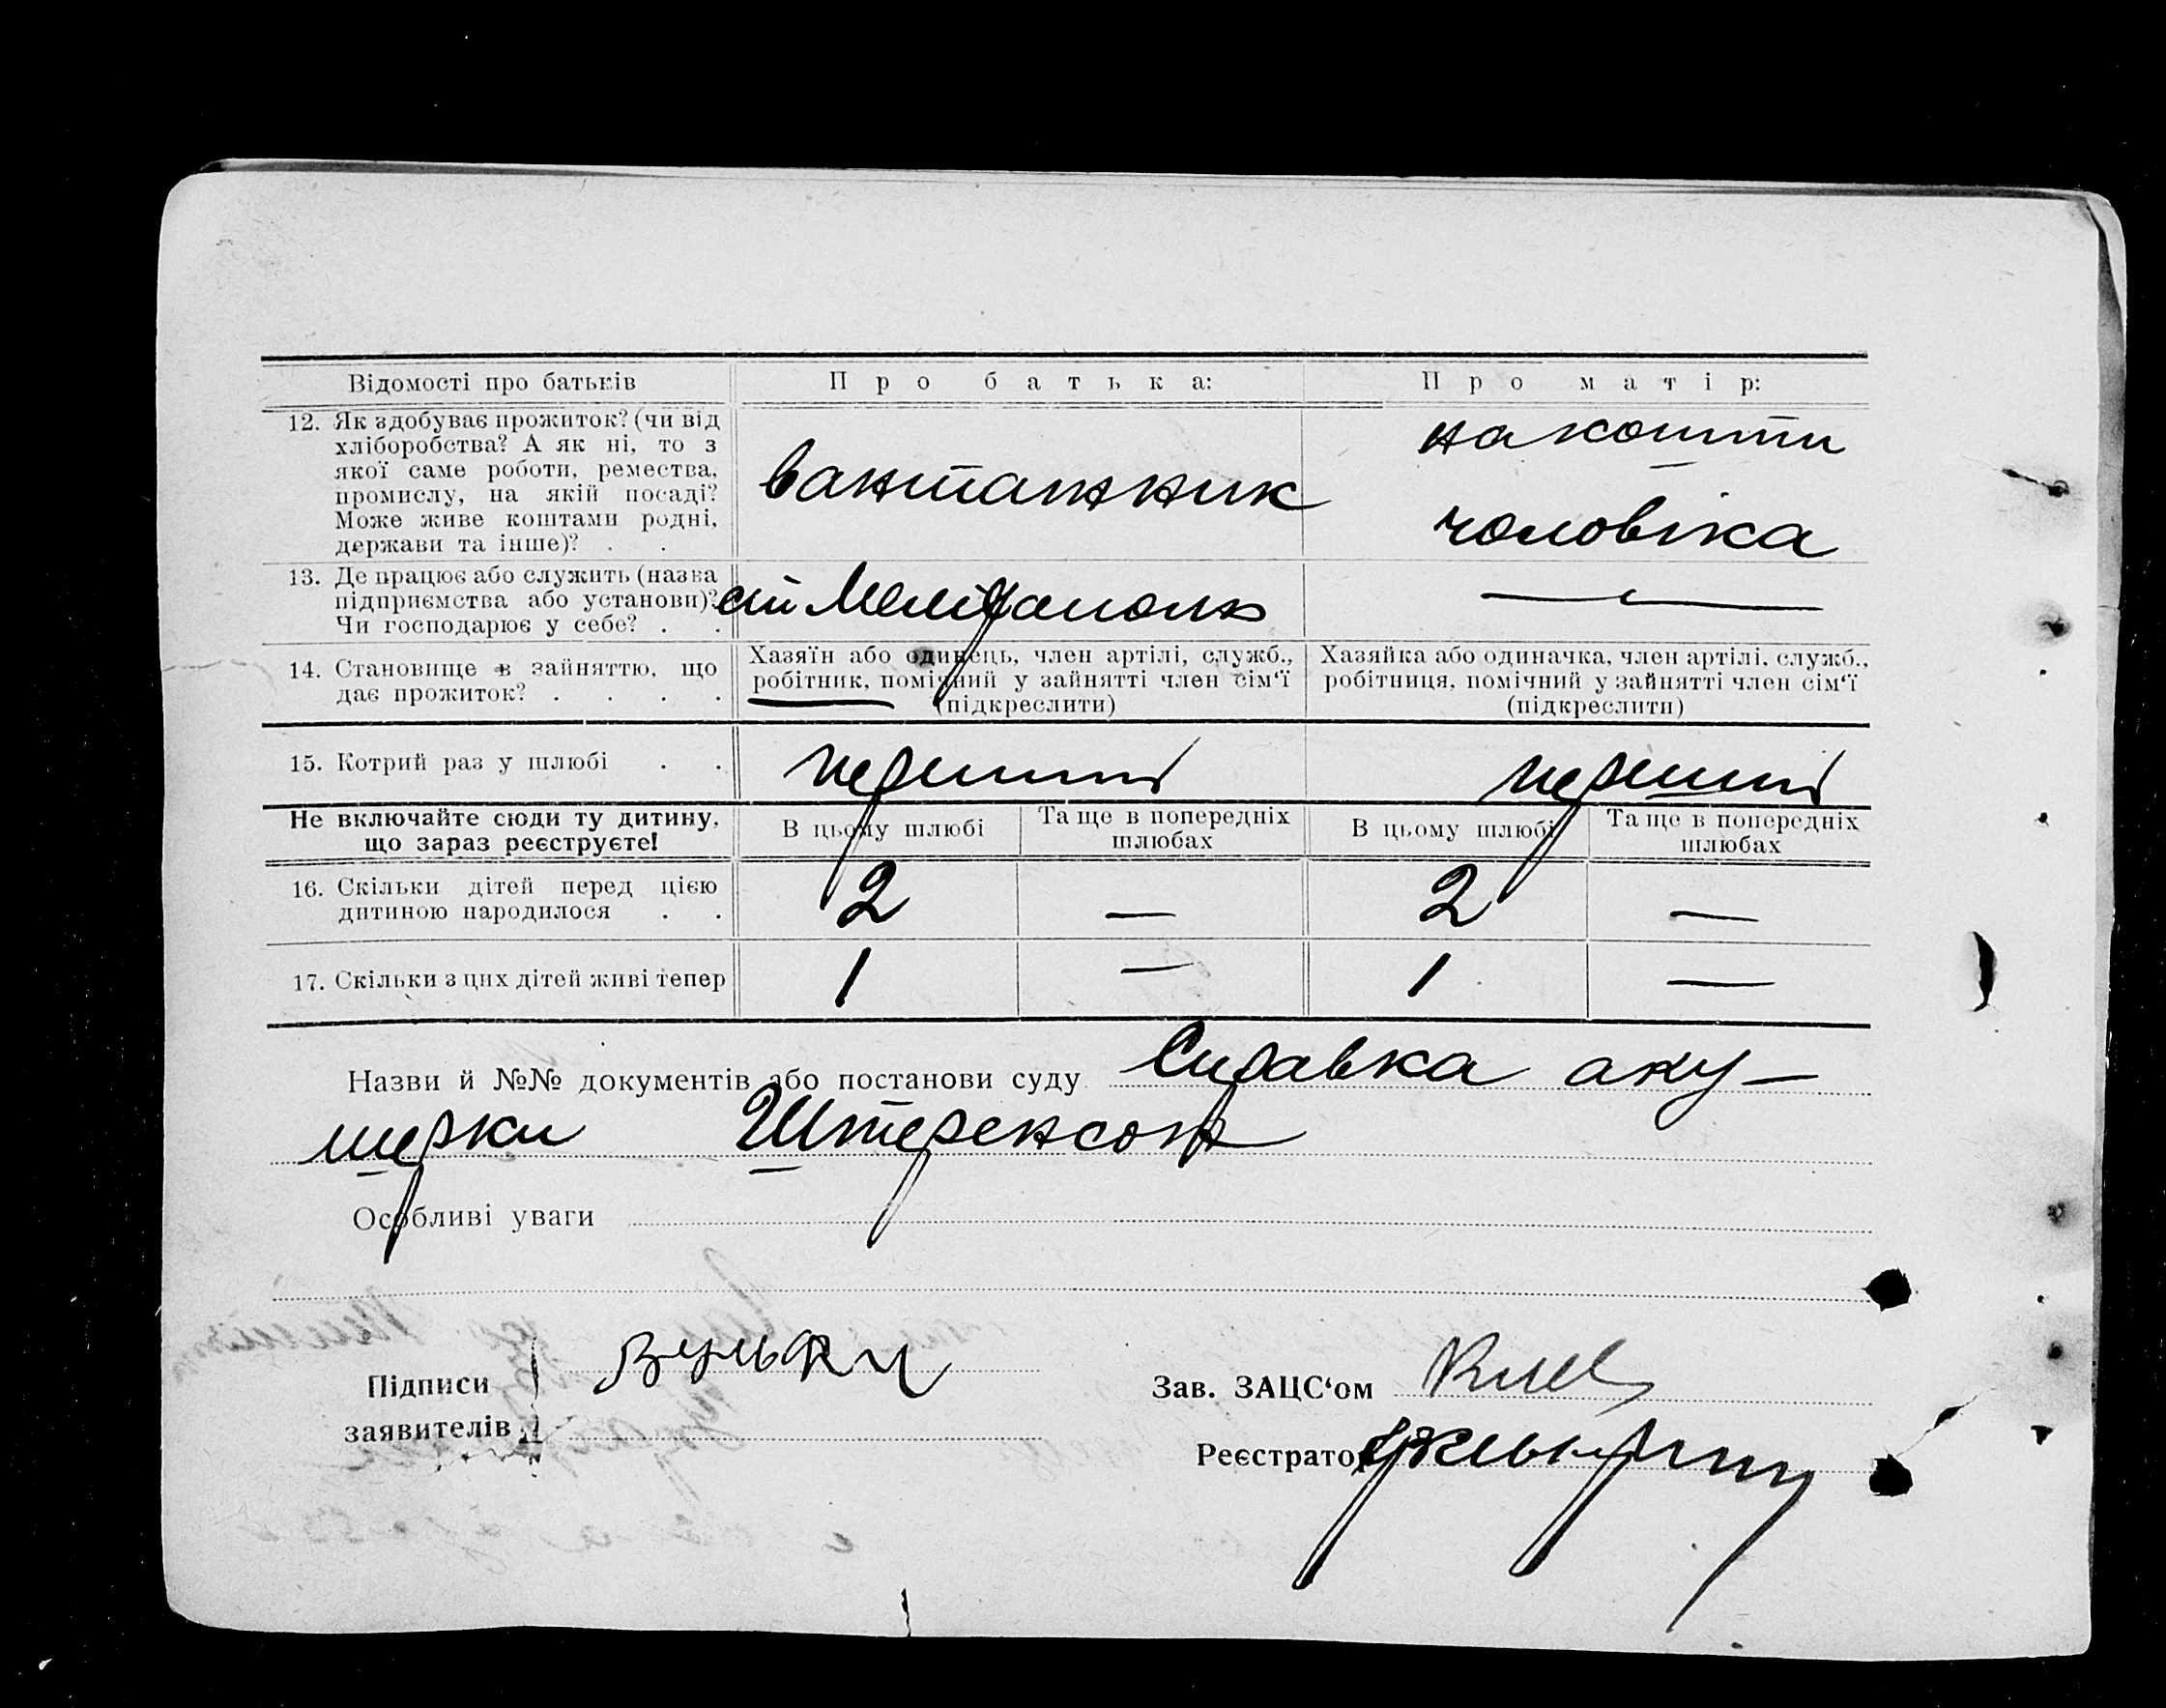 Відомості про батьків
Про батька:
Про матір:
12. Як здобуває прожиток? (чи від
хліборобства? А як ні, то з
якої саме роботи, ремества,
промислу, на якій посаді?
Може живе коштами родні,
держави та інше)? . .
вантажник
на кошти
чоловіка
13. Де працює або служить (назва
підприємства або установи)?
Чи господарює у себе? . .
ст Мелітополь
—
14. Становище в зайняттю, що
дає прожиток? . . . .
Хазяїн або одинець, член артілі, служб.,
робітник, помічний у зайнятті член сім‘ї
(підкреслити)
Хазяйка або одиначка, член артілі, служб.,
робітниця, помічний у зайнятті член сім‘ї
(підкреслити)
15. Котрий раз у шлюбі . .
перший
перший
Не включайте сюди ту дитину,
що зараз реєструєте!
В цьому шлюбі
Та ще в попередніх
шлюбах
В цьому шлюбі
Та ще в попередніх
шлюбах
16. Скільки дітей перед цією
дитиною народилося . .
2 — 2 —
17. Скільки з цих дітей живі тепер
1 — 1 —
Назви й №№ документів або постанови суду Справка аку-
шерки Штеренсон
Особливі уваги
Підписи
заявителів
Зав. ЗАЦС‘ом
Реєстратор